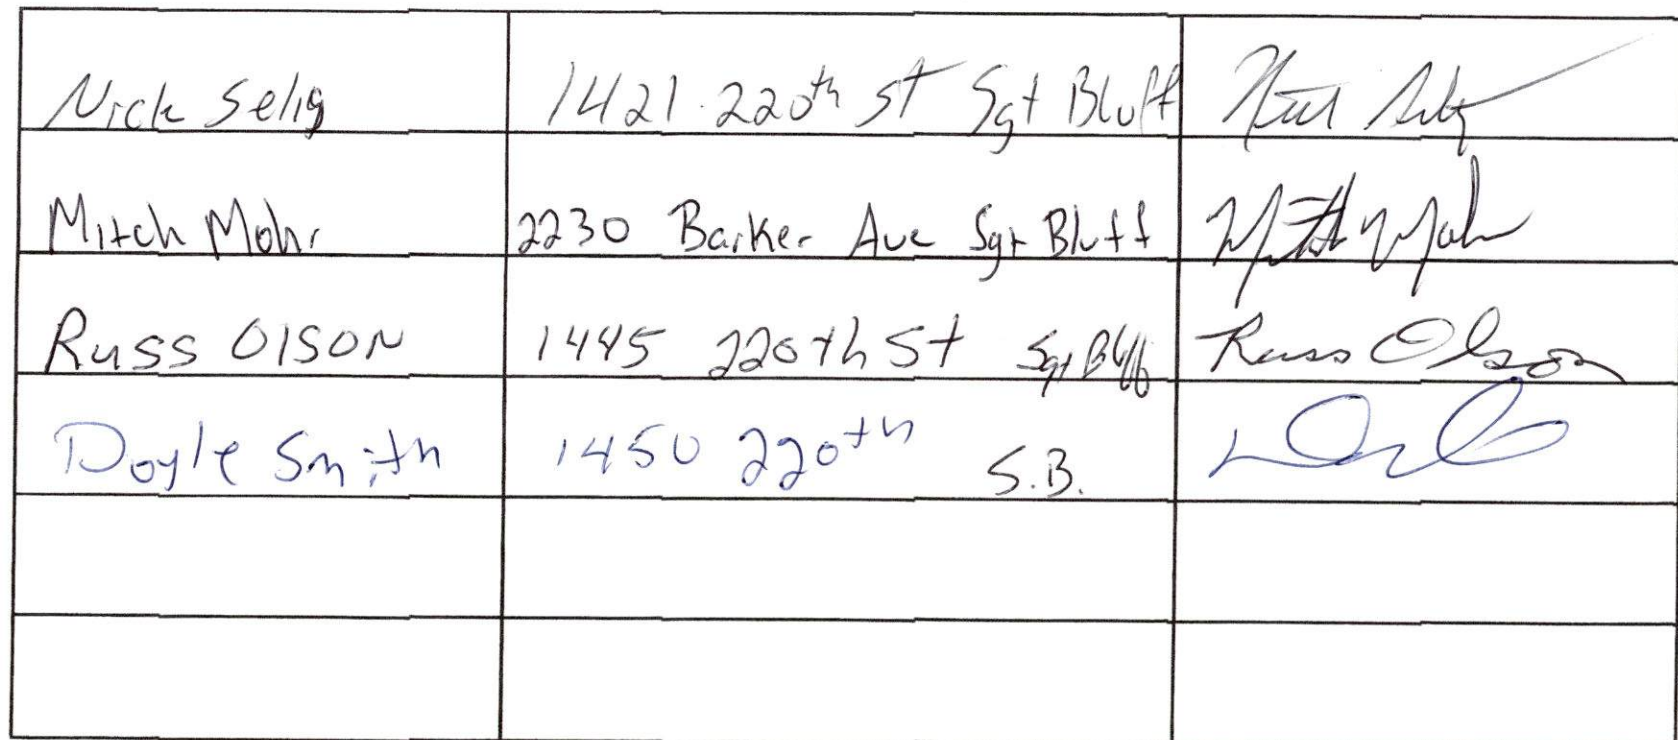 Nick Selig 1421 220th St Sgt Bluff
Mitch Mohr 2230 Barker Ave Sgt Bluff Mitch Mohr
Russ Olson 1445 220th St Sgt Bluff Russ Olson
Doyle Smith 1450 220th S.B.